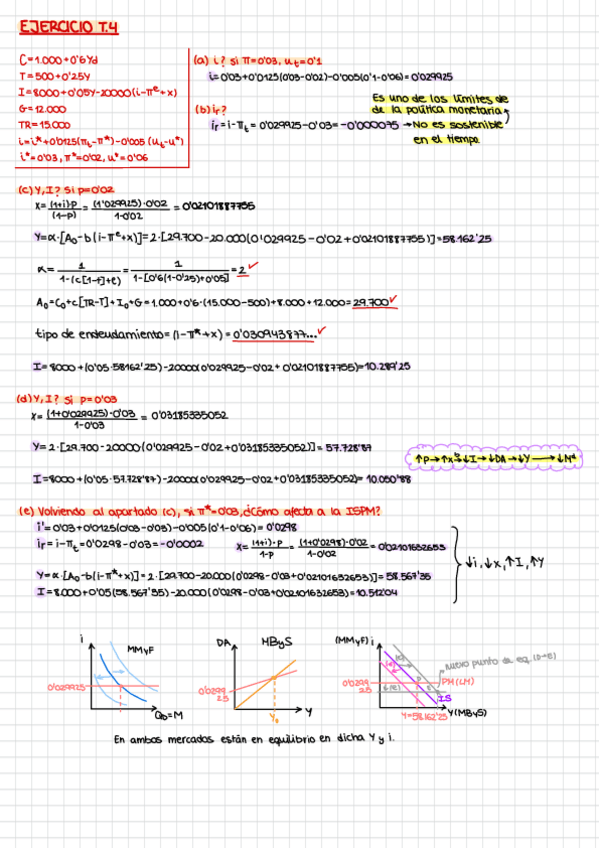 EJERCICIO T.4
C=1.000+0'6Yd
T=500+0'25Y
I=8000+0'05Y-20000(i-πᵉ+x)
G=12.000
TR=15.000
i=i*+0'0125(πₜ-π*)-0'005(uₜ-u*)
i*=0'03, π*=0'02, u*=0'06
(a) i? si π=0'03, uₜ=0'1
i=0'03+0'0125(0'03-0'02)-0'005(0'1-0'06)=0'029925
(b) iᵣ?
iᵣ=i-πₜ=0'029925-0'03=-0'000075→No es sostenible
en el tiempo.
Es uno de los límites de
de la política monetaria
(c) Y, I? si p=0'02
x=(1+i)·p/(1-p)=(1'029925)·0'02/1-0'02=0'02101887755
Y=α·[A₀-b(i-πᵉ+x)]=2·[29.700-20.000(0'029925-0'02+0'02101887755)]=58.162'25
α=1/1-(c[1-t]+e)=1/1-[0'6(1-0'25)+0'05]=2✓
A₀=C₀+c[TR-T]+I₀+G=1.000+0'6·(15.000-500)+8.000+12.000=29.700✓
tipo de endeudamiento=(i-π*+x)=0'030943877...✓
I=8000+(0'05·58162'25)-20000(0'029925-0'02+0'02101887755)=10.289'25
(d) Y, I? si p=0'03
x=(1+0'029925)·0'03/1-0'03=0'03185335052
Y=2·[29.700-20000(0'029925-0'02+0'03185335052)]=57.728'87
I=8000+(0'05·57.728'87)-20000(0'029925-0'02+0'03185335052)=10.050'88
↑P→↑x→↓I→↓DA→↓Y→↓Nᵈ
(e) Volviendo al apartado (c), si π*=0'03, ¿Cómo afecta a la ISPM?
i'=0'03+0'0125(0'03-0'03)-0'005(0'1-0'06)=0'0298
iᵣ=i-πₜ=0'0298-0'03=-0'0002 x=(1+i)·p/1-p=(1+0'0298)·0'02/1-0'02=0'02101632653
Y=α·[A₀-b(i-π*+x)]=2·[29.700-20.000(0'0298-0'03+0'02101632653)]=58.567'35
I=8.000+0'05(58.567'35)-20.000(0'0298-0'03+0'02101632653)=10.512'04
↓i,↓x,↑I,↑Y
i
MMyF
0'029925
QD=M
DA
MByS
0'0299
25
Y₀
Y
(MMyF) i
nuevo punto de eq. (D→E)
0'0299
25
PM(LM)
IS
Y=58.162'25
Y(MByS)
En ambos mercados están en equilibrio en dicha Y y i.